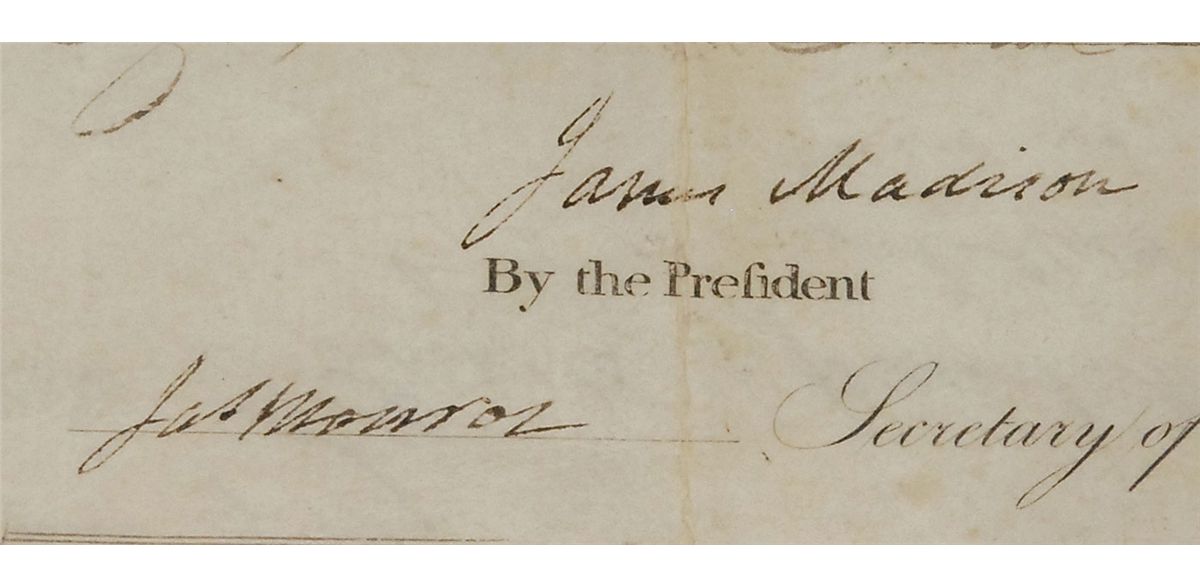 James Madison
By the Preſident
Jas Monroe
Secretary of